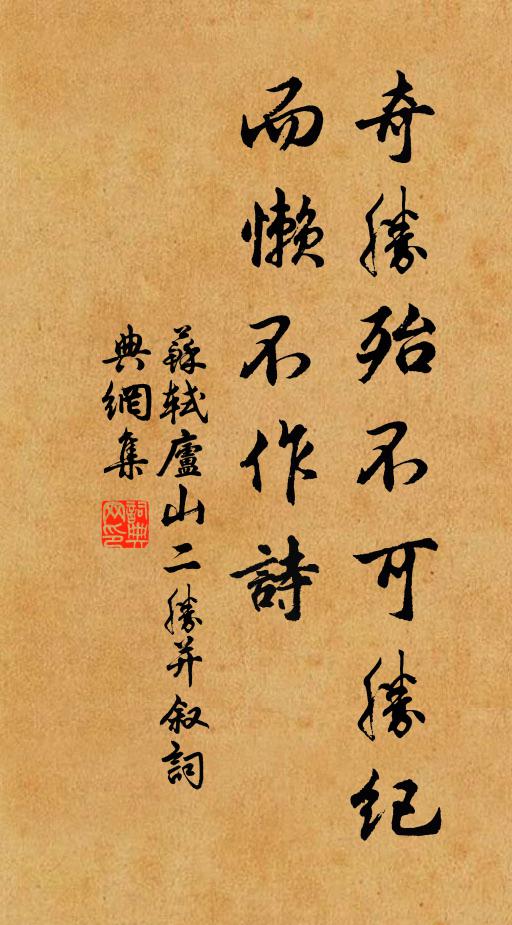 奇勝殆不可勝紀
而懶不作詩
蘇軾廬山二勝并叙詞
典網集
詞典网印